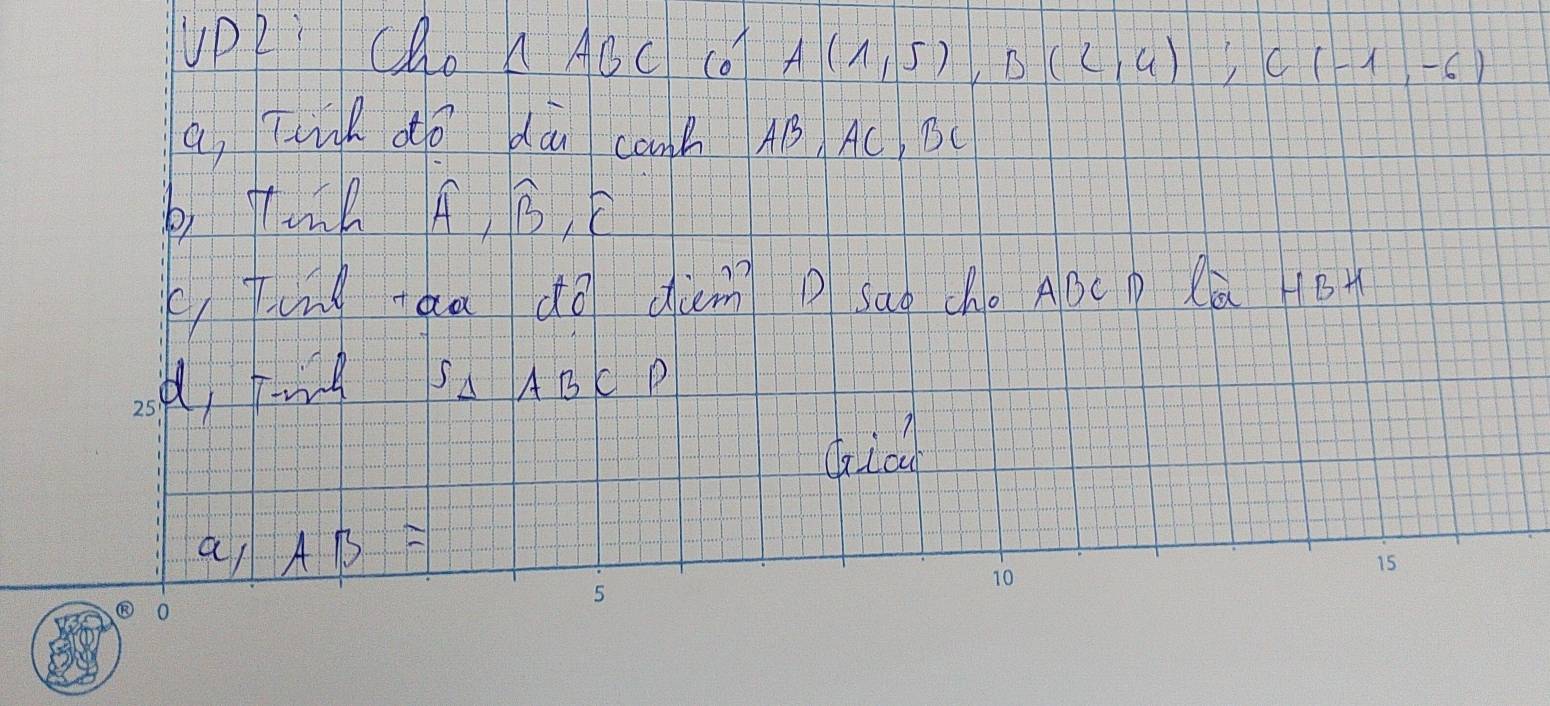 VD2: Cho Δ ABC có A(1,5), B(2,4); C(-1,-6)
a, Tính độ dài cạnh AB, AC, BC
b, Tính Â, B̂, Ĉ
c, Tính toạ độ điểm D sao cho ABCD là HBH
25
d, Tính SΔ ABCD
Giải
a, AB =
0 5 10 15
®